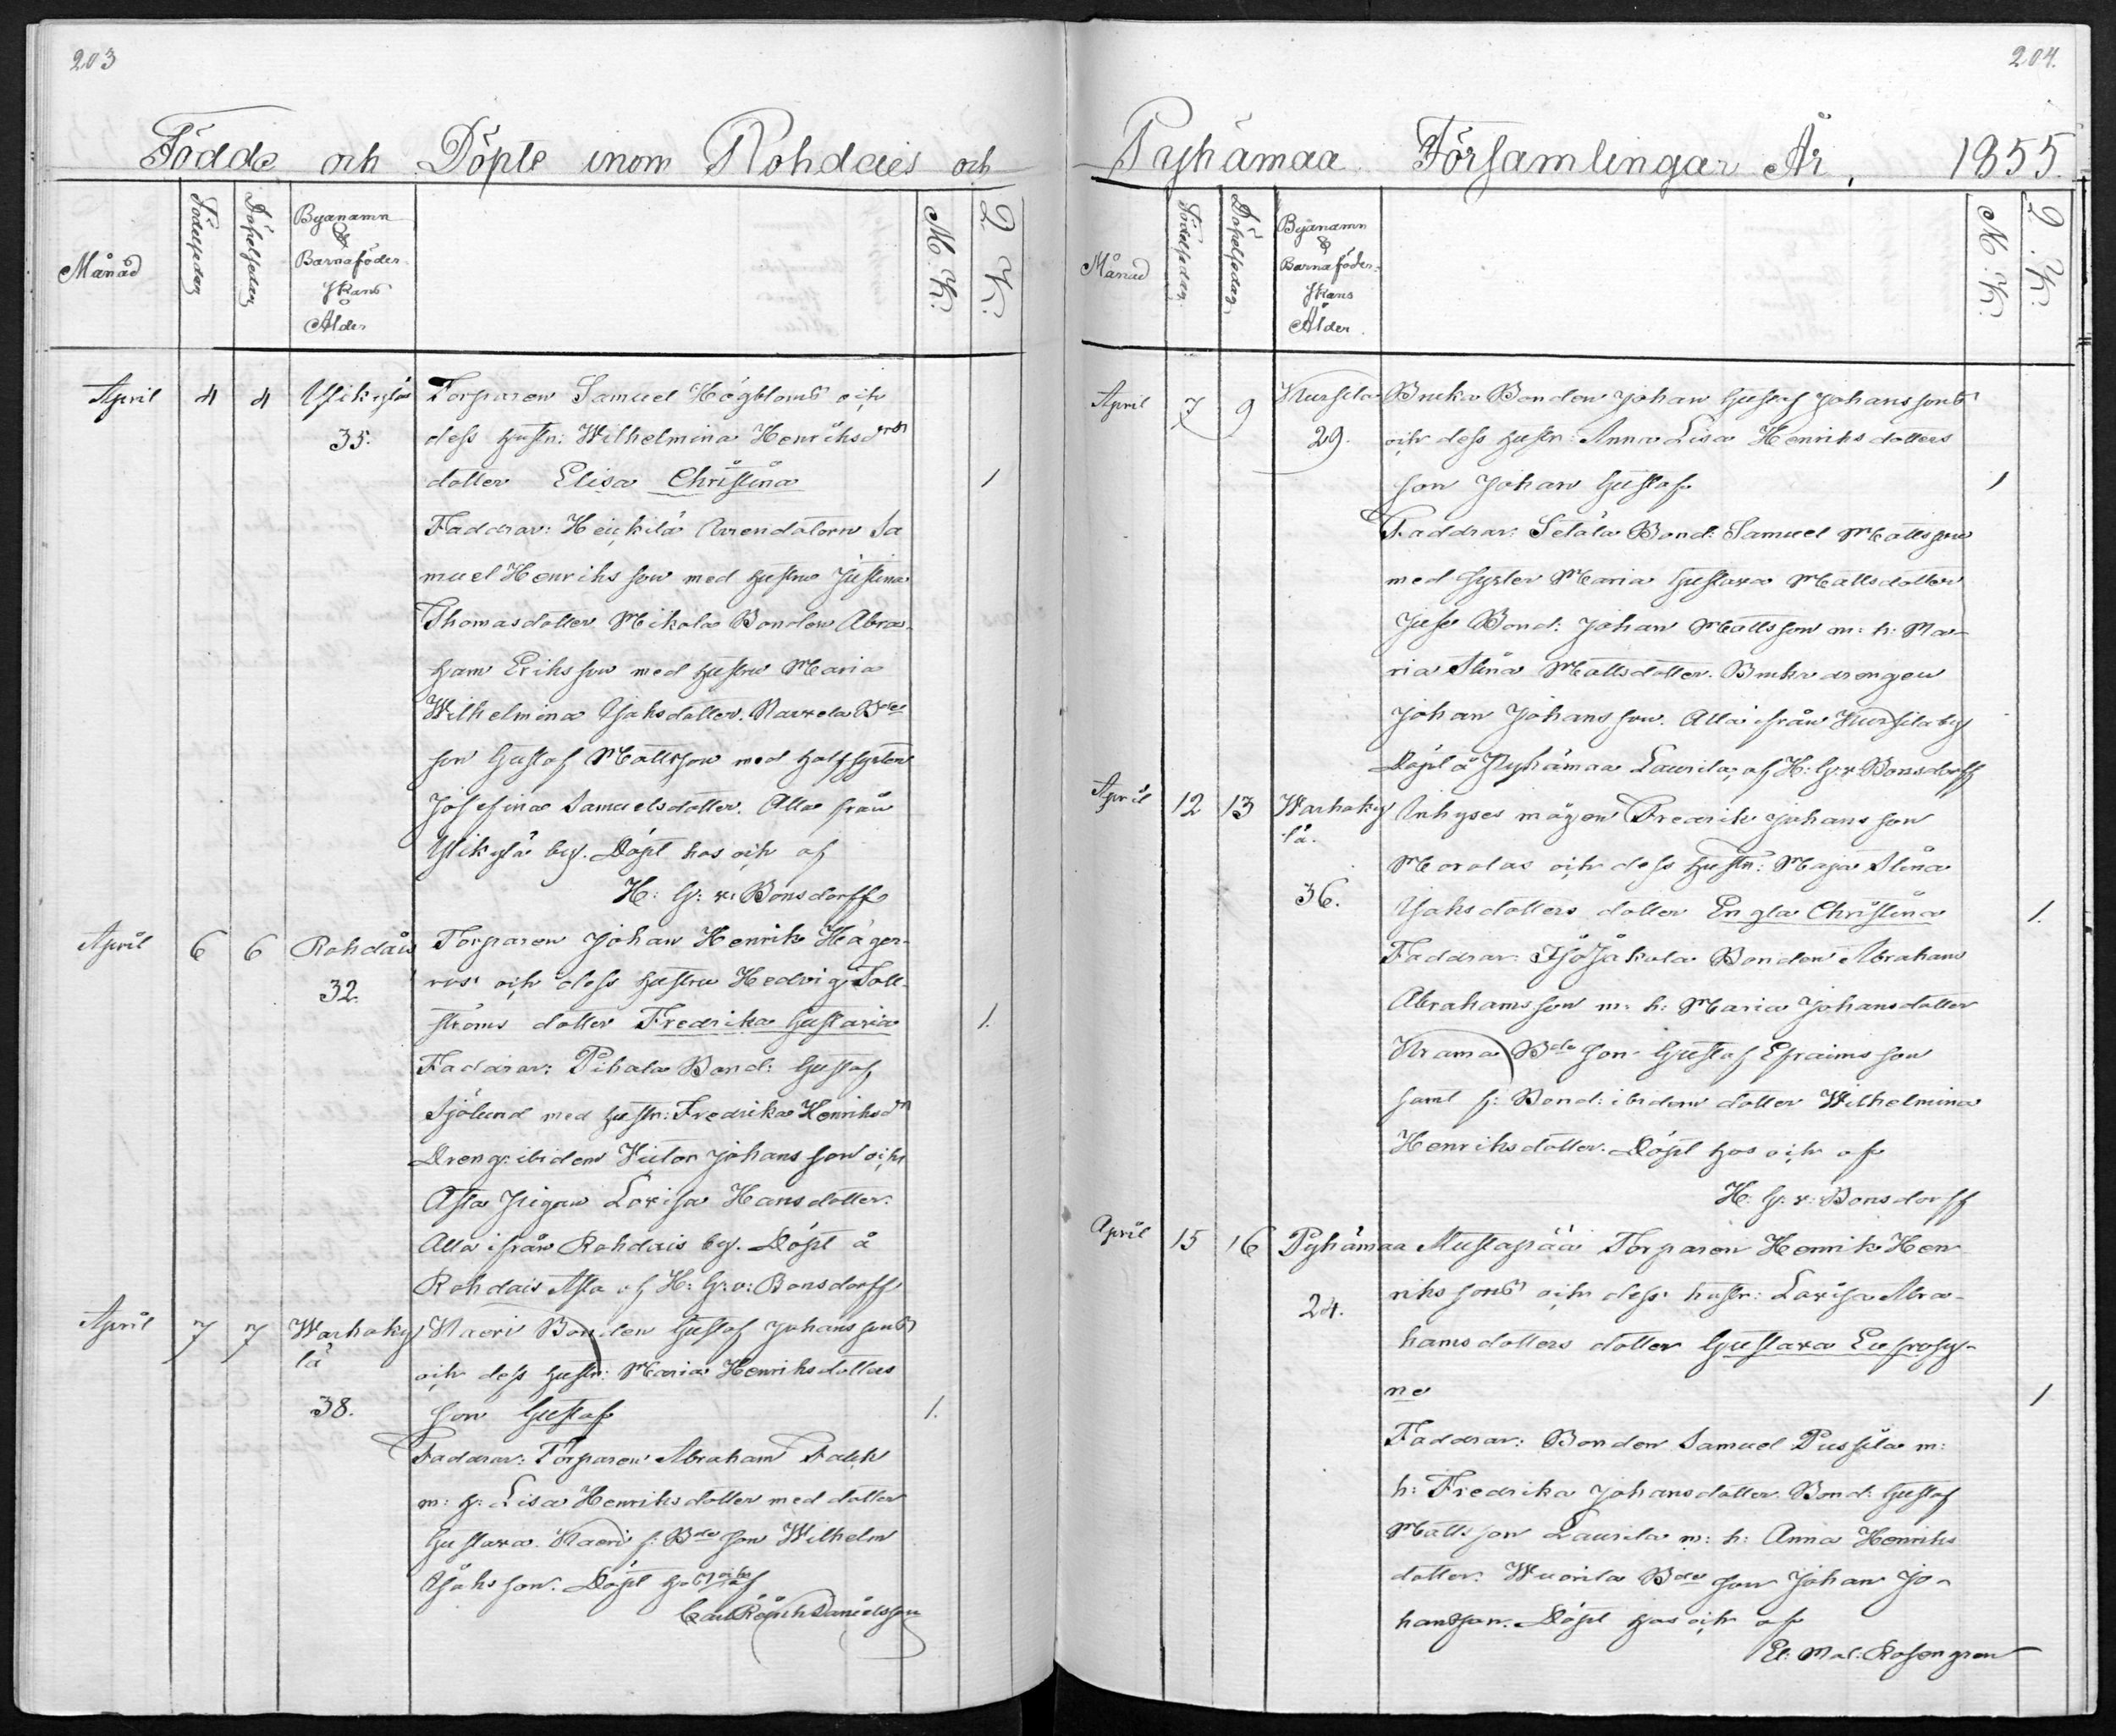 203
Födde och Döpte inom Rohdais och
Månad
Födelsedag
Döpelsedag
Byanamn
&
Barnaföder-
skans
Ålder
M. K.
Q. K.
April 4 4 Ylikylä Torparen Samuel Högbloms och
35. dess hustru: Wilhelmina Henriksdrs
dotter Elisa Christina 1
Faddrar: Heickilä Arrendatorn Sa
muel Henriksson med hustru Justina
Thomasdotter. Mikola Bonden Abra-
ham Eriksson med hustru Maria
Wilhelmina Isaksdotter. Bdes
son Gustaf Mattsson med halfsyster
Josefina Samuelsdotter. Alla från
Ylikylä by. Döpt hos och af
H: G: v: Bonsdorff
April 6 6 Rohdais Torparen Johan Henrik Häger-
32. ros' och dess hustru Hedvig Toll-
ströms dotter Fredrika Gustavia 1.
Faddrar: Pihala Bond: Gustaf
Sjölund med hustr: Fredrika Henriksdr
Dreng: ibidem Victor Johansson och
Asta pigan Lovisa Hansdotter.
Alla ifrån Rohdais by. Döpt å
Rohdais Asta af H: G: v: Bonsdorff
April 7 7 Warhoky Naeri Bonden Gustaf Johanssons
lä och dess hustr: Maria Henriksdotters
38. son Gustaf 1.
Faddrar: Torparen Abraham Falck
m: h: Lisa Henriksdotter med dotter
Gustava. Naeri f: Bde son Wilhelm
Isaksson. Döpt hos och af
Carl Danielsson
204.
Pyhämaa Församlingar År, 1855.
Månad
Födelsedag
Döpelsedag
Byanamn
&
Barnaföder-
skans
Ålder
M. K.
Q. K.
April 7 9 Kursila Bucka Bonden Johan Gustaf Johanssons
29. och dess hustr: Anna Lisa Henriksdotters
son Johan Gustaf 1
Faddrar: Setälä Bond: Samuel Mattsson
med syster Maria Gustava Mattsdotter
Juse Bond: Johan Mattsson m: h: Ma-
ria Stina Mattsdotter. Bucka drengen
Johan Johansson. Alla ifrån Kursila by
Döpt å Pyhämaa Laurila, af H: G: v Bonsdorff
April 12 13 Warhoky Inhyses mågen Fredrik Johansson
lä. och dess hustr: Maja Stina
36. Isaksdotters dotter Engla Christina 1.
Faddrar: Bonden Abraham
Abrahamsson m: h: Maria Johansdotter
Krama Bde son Gustaf Efraimsson
samt f: Bond: ibidem dotter Wilhelmina
Henriksdotter. Döpt hos och af
H: G: v: Bonsdorff
April 15 16 Pyhämaa Mustapää Torparen Henrik Hen
24. rikssons och dess hustr: Lovisa Abra-
hamsdotters dotter Gustava Eufrosy-
ne 1
Faddrar: Bonden Samuel Pussila m:
h: Fredrika Johansdotter. Bond: Gustaf
Mattsson Laurila m: h: Anna Henriks
dotter. Wuorila Bde son Johan Jo-
hansson. Döpt hos och af
El: Mal: Rosengren